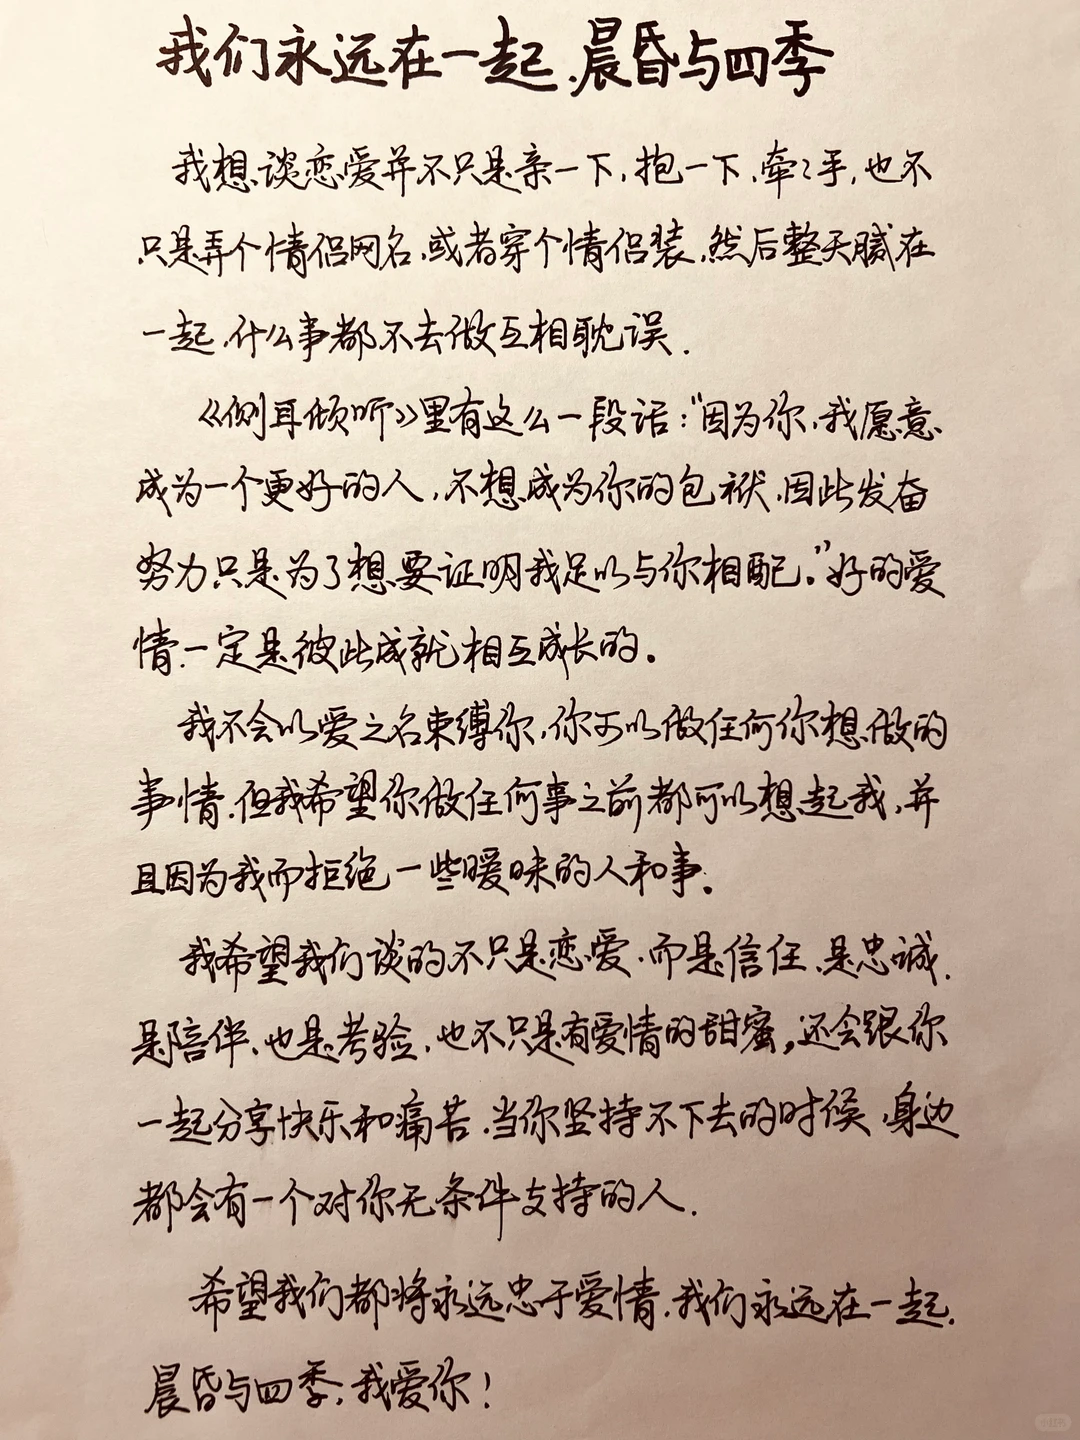 我们永远在一起.晨昏与四季
我想谈恋爱并不只是亲一下,抱一下,牵々手,也不
只是弄个情侣网名,或者穿个情侣装,然后整天腻在
一起,什么事都不去做互相耽误.
《侧耳倾听》里有这么一段话:"因为你,我愿意
成为一个更好的人,不想成为你的包袱,因此发奋
努力只是为了想要证明我足以与你相配。"好的爱
情,一定是彼此成就相互成长的。
我不会以爱之名束缚你,你可以做任何你想做的
事情,但我希望你做任何事之前都可以想起我,并
且因为我而拒绝一些暧昧的人和事。
我希望我们谈的不只是恋爱,而是信任,是忠诚,
是陪伴,也是考验,也不只是有爱情的甜蜜,还会跟你
一起分享快乐和痛苦.当你坚持不下去的时候,身边
都会有一个对你无条件支持的人.
希望我们都将永远忠于爱情,我们永远在一起.
晨昏与四季,我爱你!
小红书